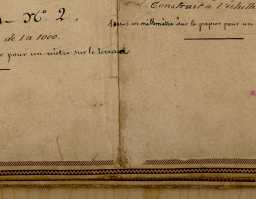 N° 2.
de 1 a 1000.
pour un mètre sur le terrain
Construit à l'échelle
un millimètre sur le papier pour un